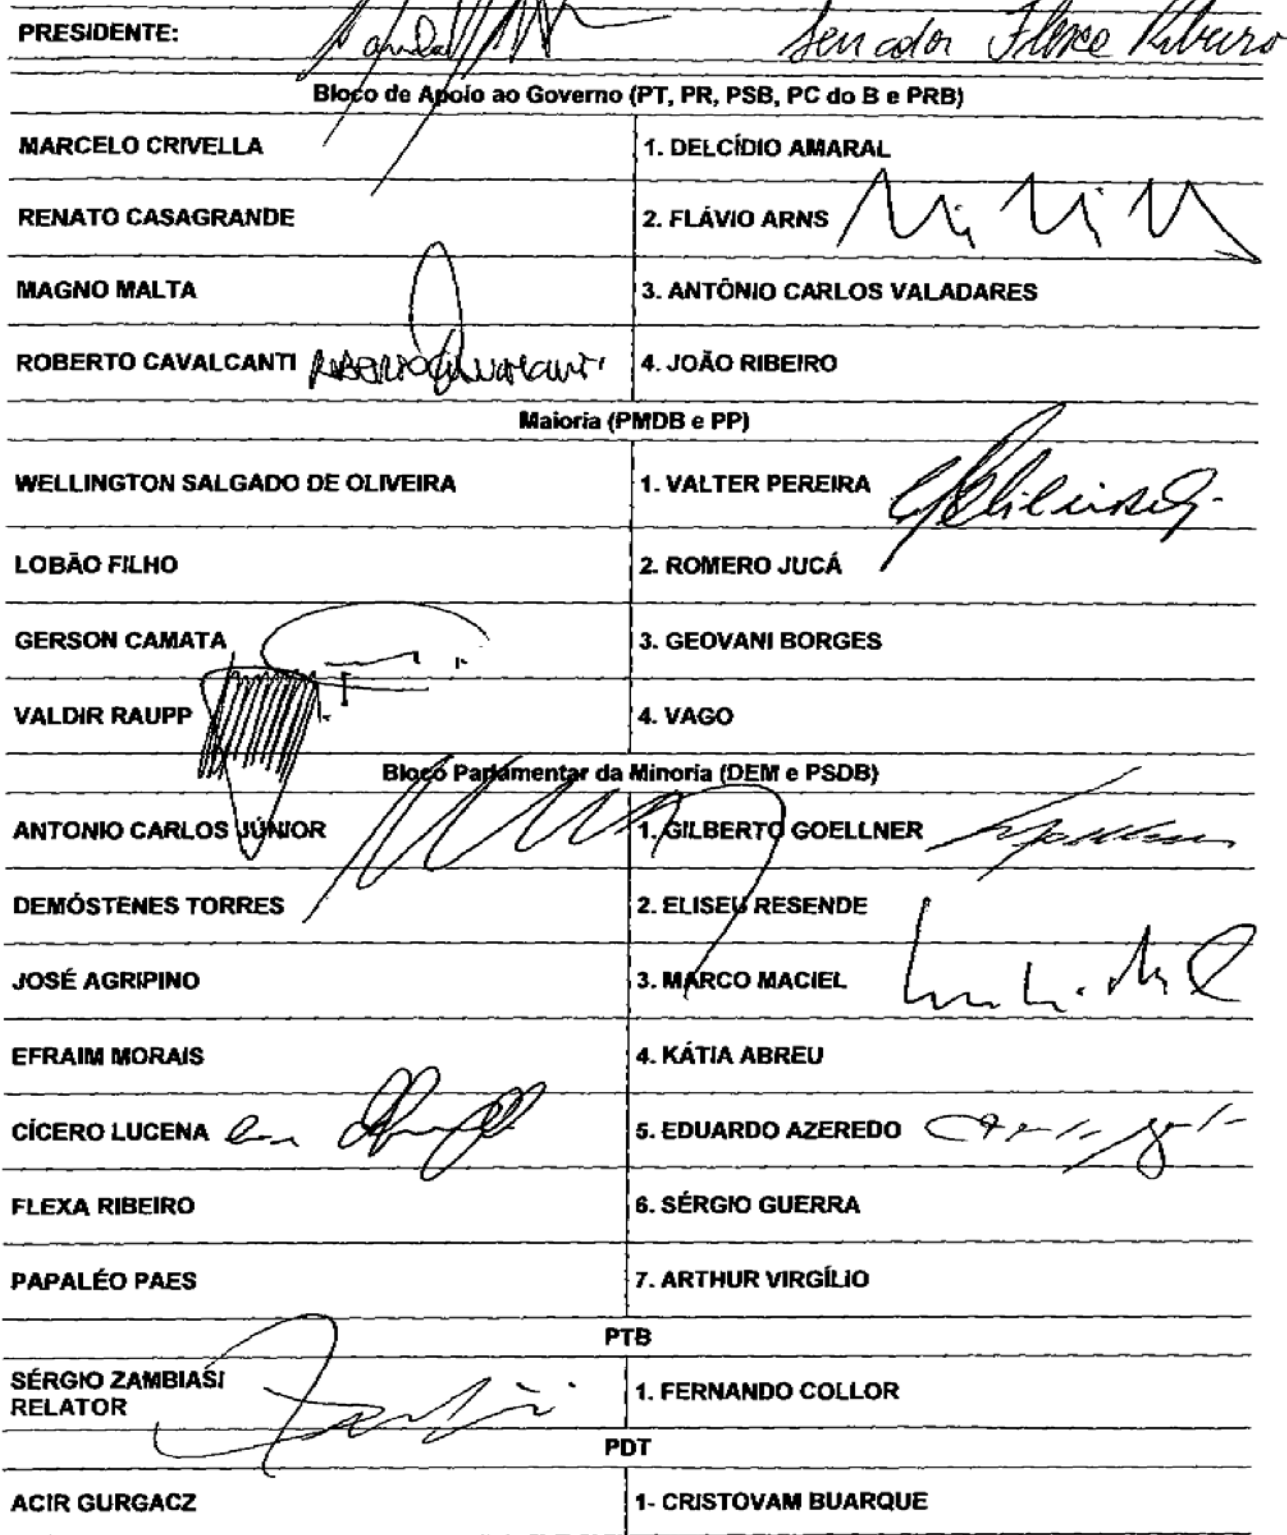 PRESIDENTE: Senador Flexa Ribeiro
Bloco de Apoio ao Governo (PT, PR, PSB, PC do B e PRB)
MARCELO CRIVELLA 1. DELCÍDIO AMARAL
RENATO CASAGRANDE 2. FLÁVIO ARNS
MAGNO MALTA 3. ANTÔNIO CARLOS VALADARES
ROBERTO CAVALCANTI ROBERTO CAVALCANTI 4. JOÃO RIBEIRO
Maioria (PMDB e PP)
WELLINGTON SALGADO DE OLIVEIRA 1. VALTER PEREIRA
LOBÃO FILHO 2. ROMERO JUCÁ
GERSON CAMATA 3. GEOVANI BORGES
VALDIR RAUPP 4. VAGO
Bloco Parlamentar da Minoria (DEM e PSDB)
ANTONIO CARLOS JÚNIOR 1. GILBERTO GOELLNER
DEMÓSTENES TORRES 2. ELISEU RESENDE
JOSÉ AGRIPINO 3. MARCO MACIEL
EFRAIM MORAIS 4. KÁTIA ABREU
CÍCERO LUCENA 5. EDUARDO AZEREDO
FLEXA RIBEIRO 6. SÉRGIO GUERRA
PAPALÉO PAES 7. ARTHUR VIRGÍLIO
PTB
SÉRGIO ZAMBIASI 1. FERNANDO COLLOR
RELATOR
PDT
ACIR GURGACZ 1- CRISTOVAM BUARQUE